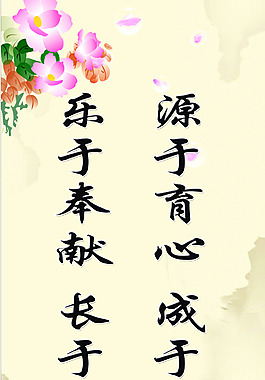 源于育心 成于
乐于奉献 长于